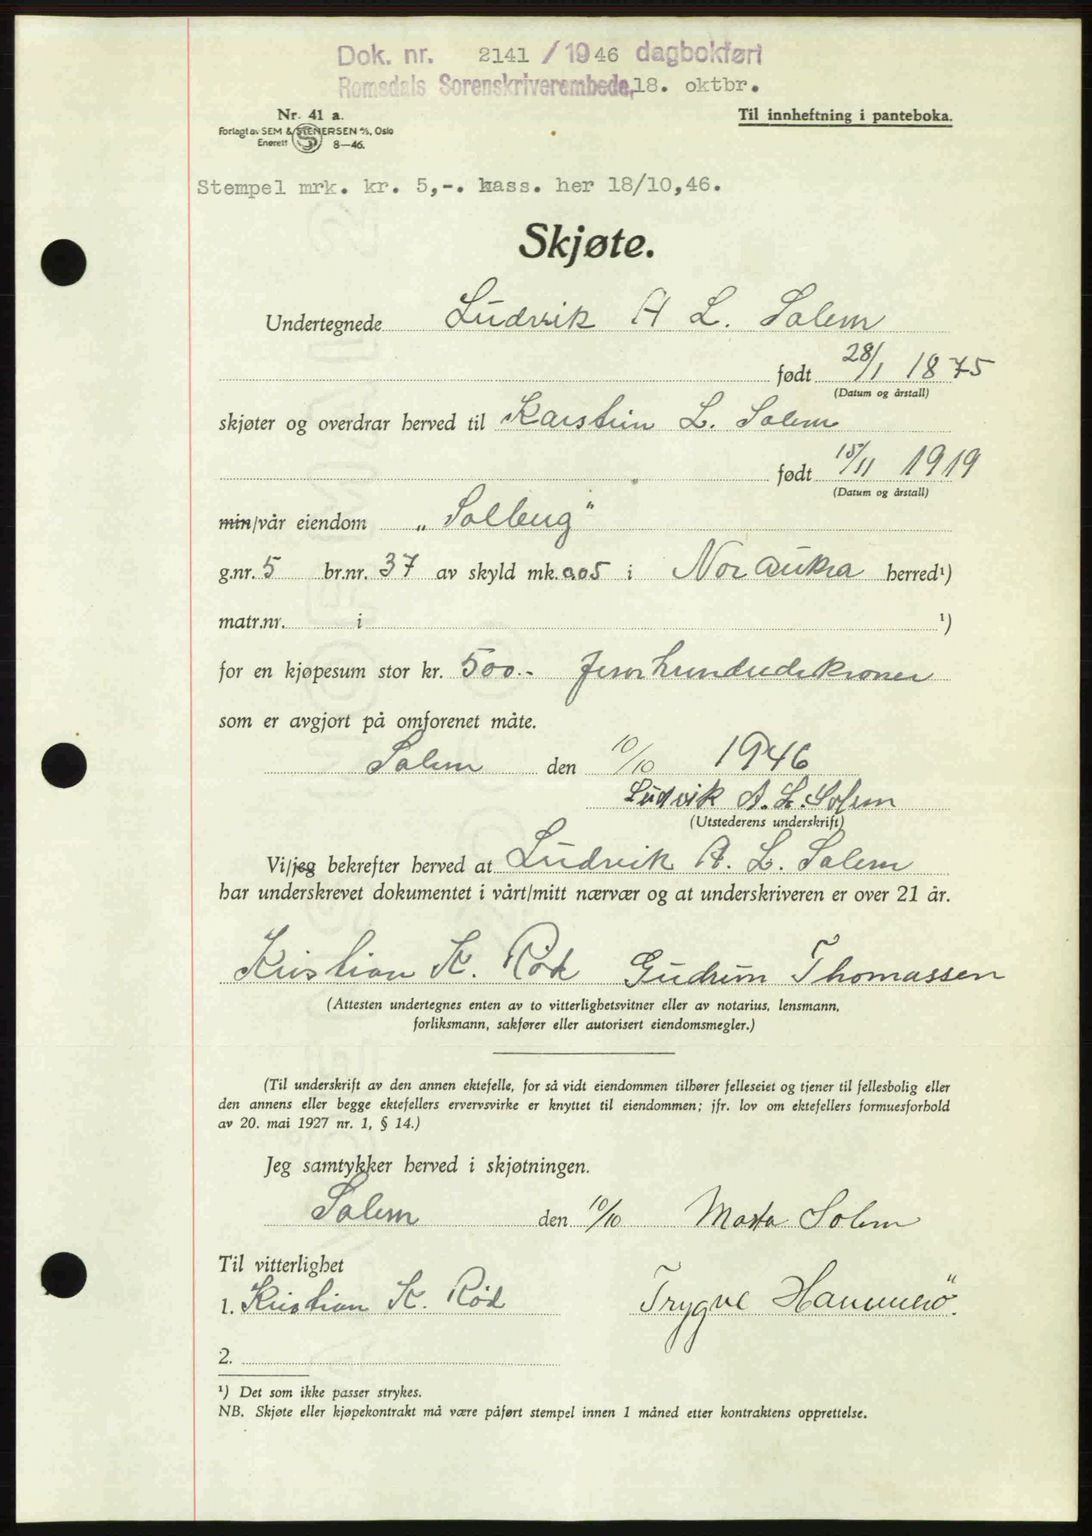 Dok. nr. 2141 / 1946 dagbokført
Romsdals Sorenskriverembede, 18. oktbr.
Nr. 41 a.
Forlagt av SEM & STENERSEN A/S, Oslo
Enerett 8—46.
Til innheftning i panteboka.
Stempel mrk. kr. 5,-. kass. her 18/10,46.
Skjøte.
Undertegnede Ludvik A L. Solem
født 28/1 1875
(Datum og årstall)
skjøter og overdrar herved til Karstein L. Solem
født 15/11 1919
(Datum og årstall)
min/vår eiendom „Solberg"
g.nr. 5 br.nr. 37 av skyld mk. 0.05 i Nor Aukra herred¹)
matr.nr. i ¹)
for en kjøpesum stor kr. 500.- femhundredekroner
som er avgjort på omforenet måte.
Solem den 10/10 1946
Ludvik A. L. Solem
(Utstederens underskrift)
Vi/jeg bekrefter herved at Ludvik A. L. Solem
har underskrevet dokumentet i vårt/mitt nærvær og at underskriveren er over 21 år.
Kristian K. Rød Gudrun Thomassen
(Attesten undertegnes enten av to vitterlighetsvitner eller av notarius, lensmann,
forliksmann, sakfører eller autorisert eiendomsmegler.)
(Til underskrift av den annen ektefelle, for så vidt eiendommen tilhører felleseiet og tjener til fellesbolig eller
den annens eller begge ektefellers ervervsvirke er knyttet til eiendommen; jfr. lov om ektefellers formuesforhold
av 20. mai 1927 nr. 1, § 14.)
Jeg samtykker herved i skjøtningen.
Solem den 10/10 Marta Solem
Til vitterlighet
1. Kristian K. Rød Trygve Hammerö.
2.
¹) Det som ikke passer strykes.
NB. Skjøte eller kjøpekontrakt må være påført stempel innen 1 måned etter kontraktens opprettelse.